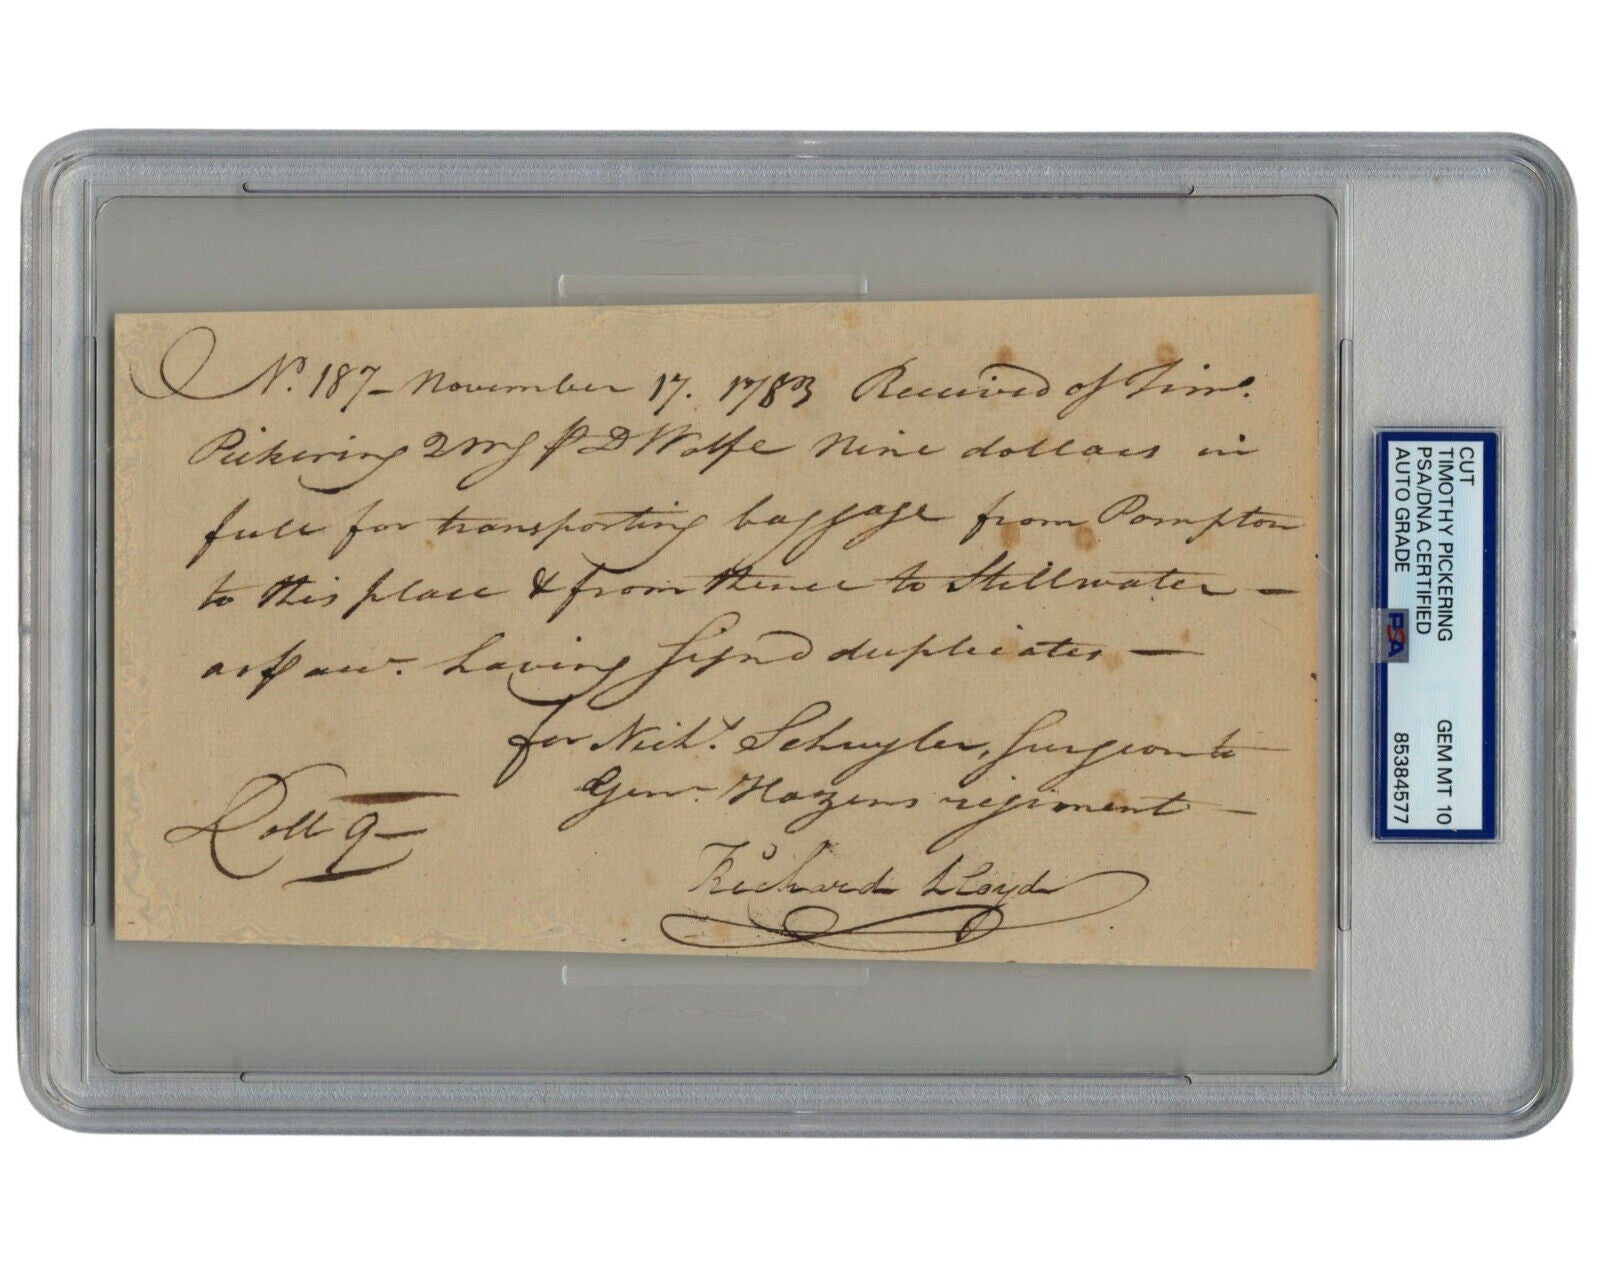 No. 187 - November 17. 1783 Received of Tim.
Pickering 2MG P D Wolfe Nine dollars in
full for transporting baggage from Pompton
to this place & from thence to Stillwater -
as having Signd duplicates -
for Nichs. Schuyler, Surgeon to
Genr. Hazens regiment -
Doll 9 -
Richard Lloyd
CUT
TIMOTHY PICKERING
PSA/DNA CERTIFIED
AUTO GRADE
GEM MT 10
85384577
PSA